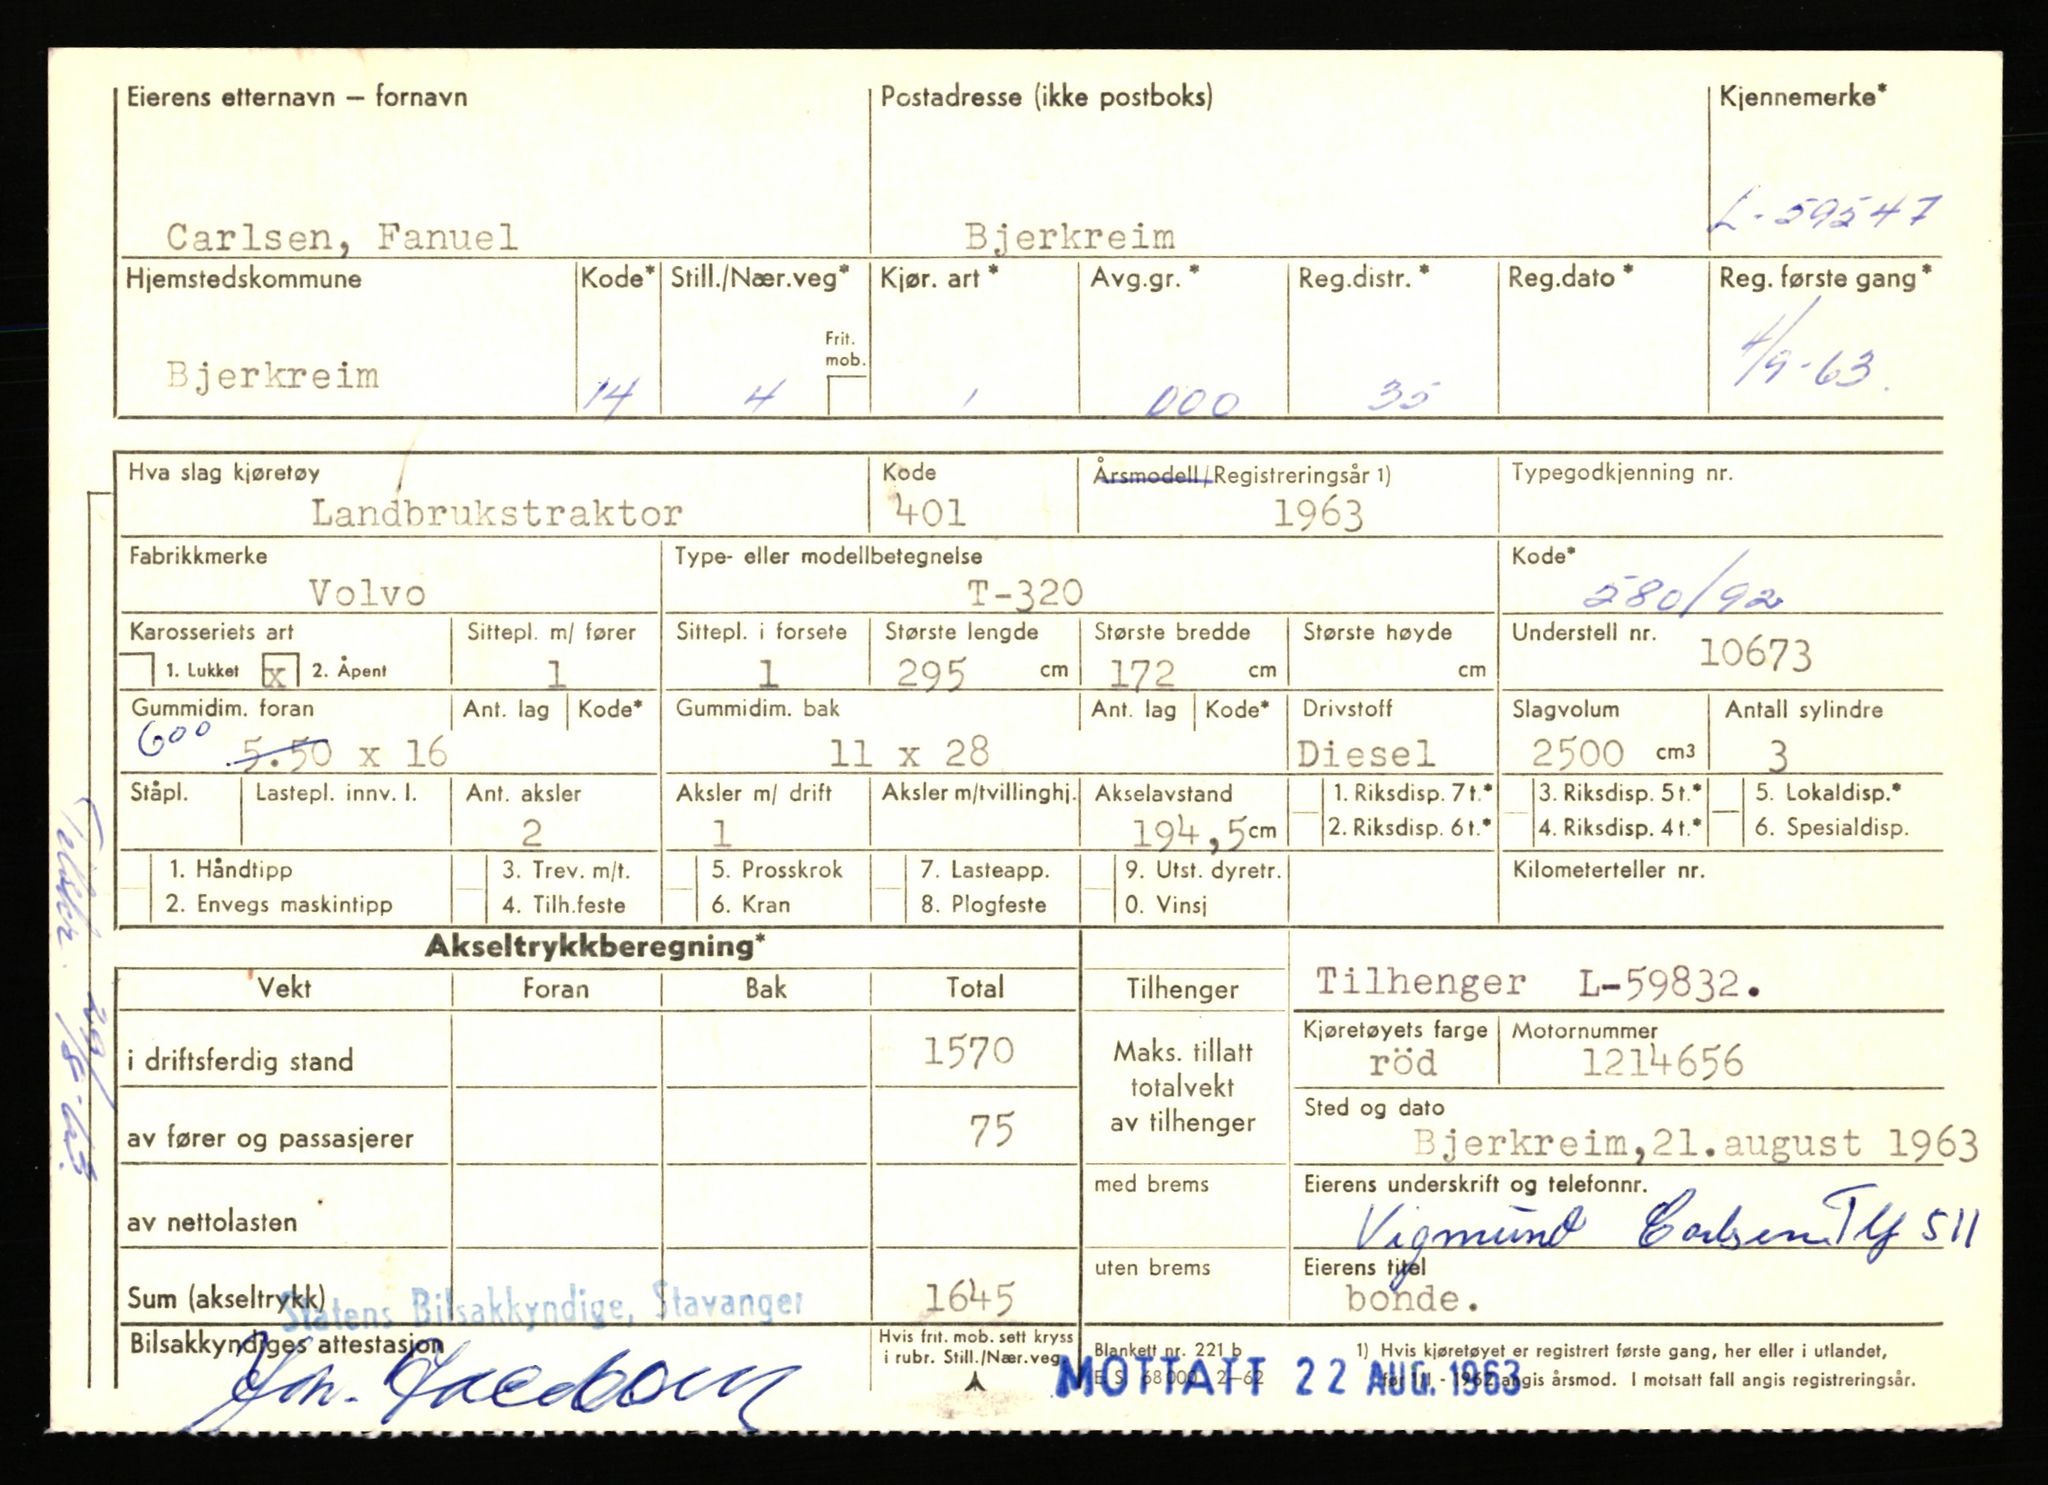 Eierens etternavn – fornavn Postadresse (ikke postboks) Kjennemerke*
L-59547
Carlsen, Fanuel Bjerkreim
Hjemstedskommune Kode* Still./Nær.veg* Kjør. art* Avg.gr.* Reg.distr.* Reg.dato* Reg. første gang*
Frit. mob.
Bjerkreim 14 4 1 000 35 4/9-63.
Hva slag kjøretøy Kode Årsmodell/Registreringsår 1) Typegodkjenning nr.
Landbrukstraktor 401 1963
Fabrikkmerke Type- eller modellbetegnelse Kode*
Volvo T-320 580/92
Karosseriets art Sittepl. m/ fører Sittepl. i forsete Største lengde Største bredde Største høyde Understell nr.
1. Lukket x 2. Åpent 1 1 295 cm 172 cm cm 10673
Gummidim. foran Ant. lag Kode* Gummidim. bak Ant. lag Kode* Drivstoff Slagvolum Antall sylindre
600
5.50 x 16 11 x 28 Diesel 2500 cm3 3
Ståpl. Lastepl. innv. l. Ant. aksler Aksler m/ drift Aksler m/tvillinghj. Akselavstand 1. Riksdisp. 7 t.* 3. Riksdisp. 5 t.* 5. Lokaldisp.*
2 1 194,5 cm 2. Riksdisp. 6 t.* 4. Riksdisp. 4 t.* 6. Spesialdisp.
1. Håndtipp 3. Trev. m/t. 5. Prosskrok 7. Lasteapp. 9. Utst. dyretr. Kilometerteller nr.
2. Envegs maskintipp 4. Tilh.feste 6. Kran 8. Plogfeste 0. Vinsj
Akseltrykkberegning*
Vekt Foran Bak Total Tilhenger Tilhenger L-59832.
i driftsferdig stand 1570 Maks. tillatt totalvekt av tilhenger Kjøretøyets farge Motornummer
röd 1214656
av fører og passasjerer 75 Sted og dato
Bjerkreim,21.august 1963
av nettolasten med brems Eierens underskrift og telefonnr.
Vigmund Carlsen Tlf 511
Sum (akseltrykk) 1645 uten brems Eierens titel
bonde.
Statens Bilsakkyndige, Stavanger
Bilsakkyndiges attestasjon Hvis frit. mob. sett kryss i rubr. Still./Nær.veg
Blankett nr. 221 b 1) Hvis kjøretøyet er registrert første gang, her eller i utlandet,
E. S. 68 000 2–62 før 1/1 - 1962 angis årsmod. I motsatt fall angis registreringsår.
MOTTATT 22 AUG. 1963
29/8-63.